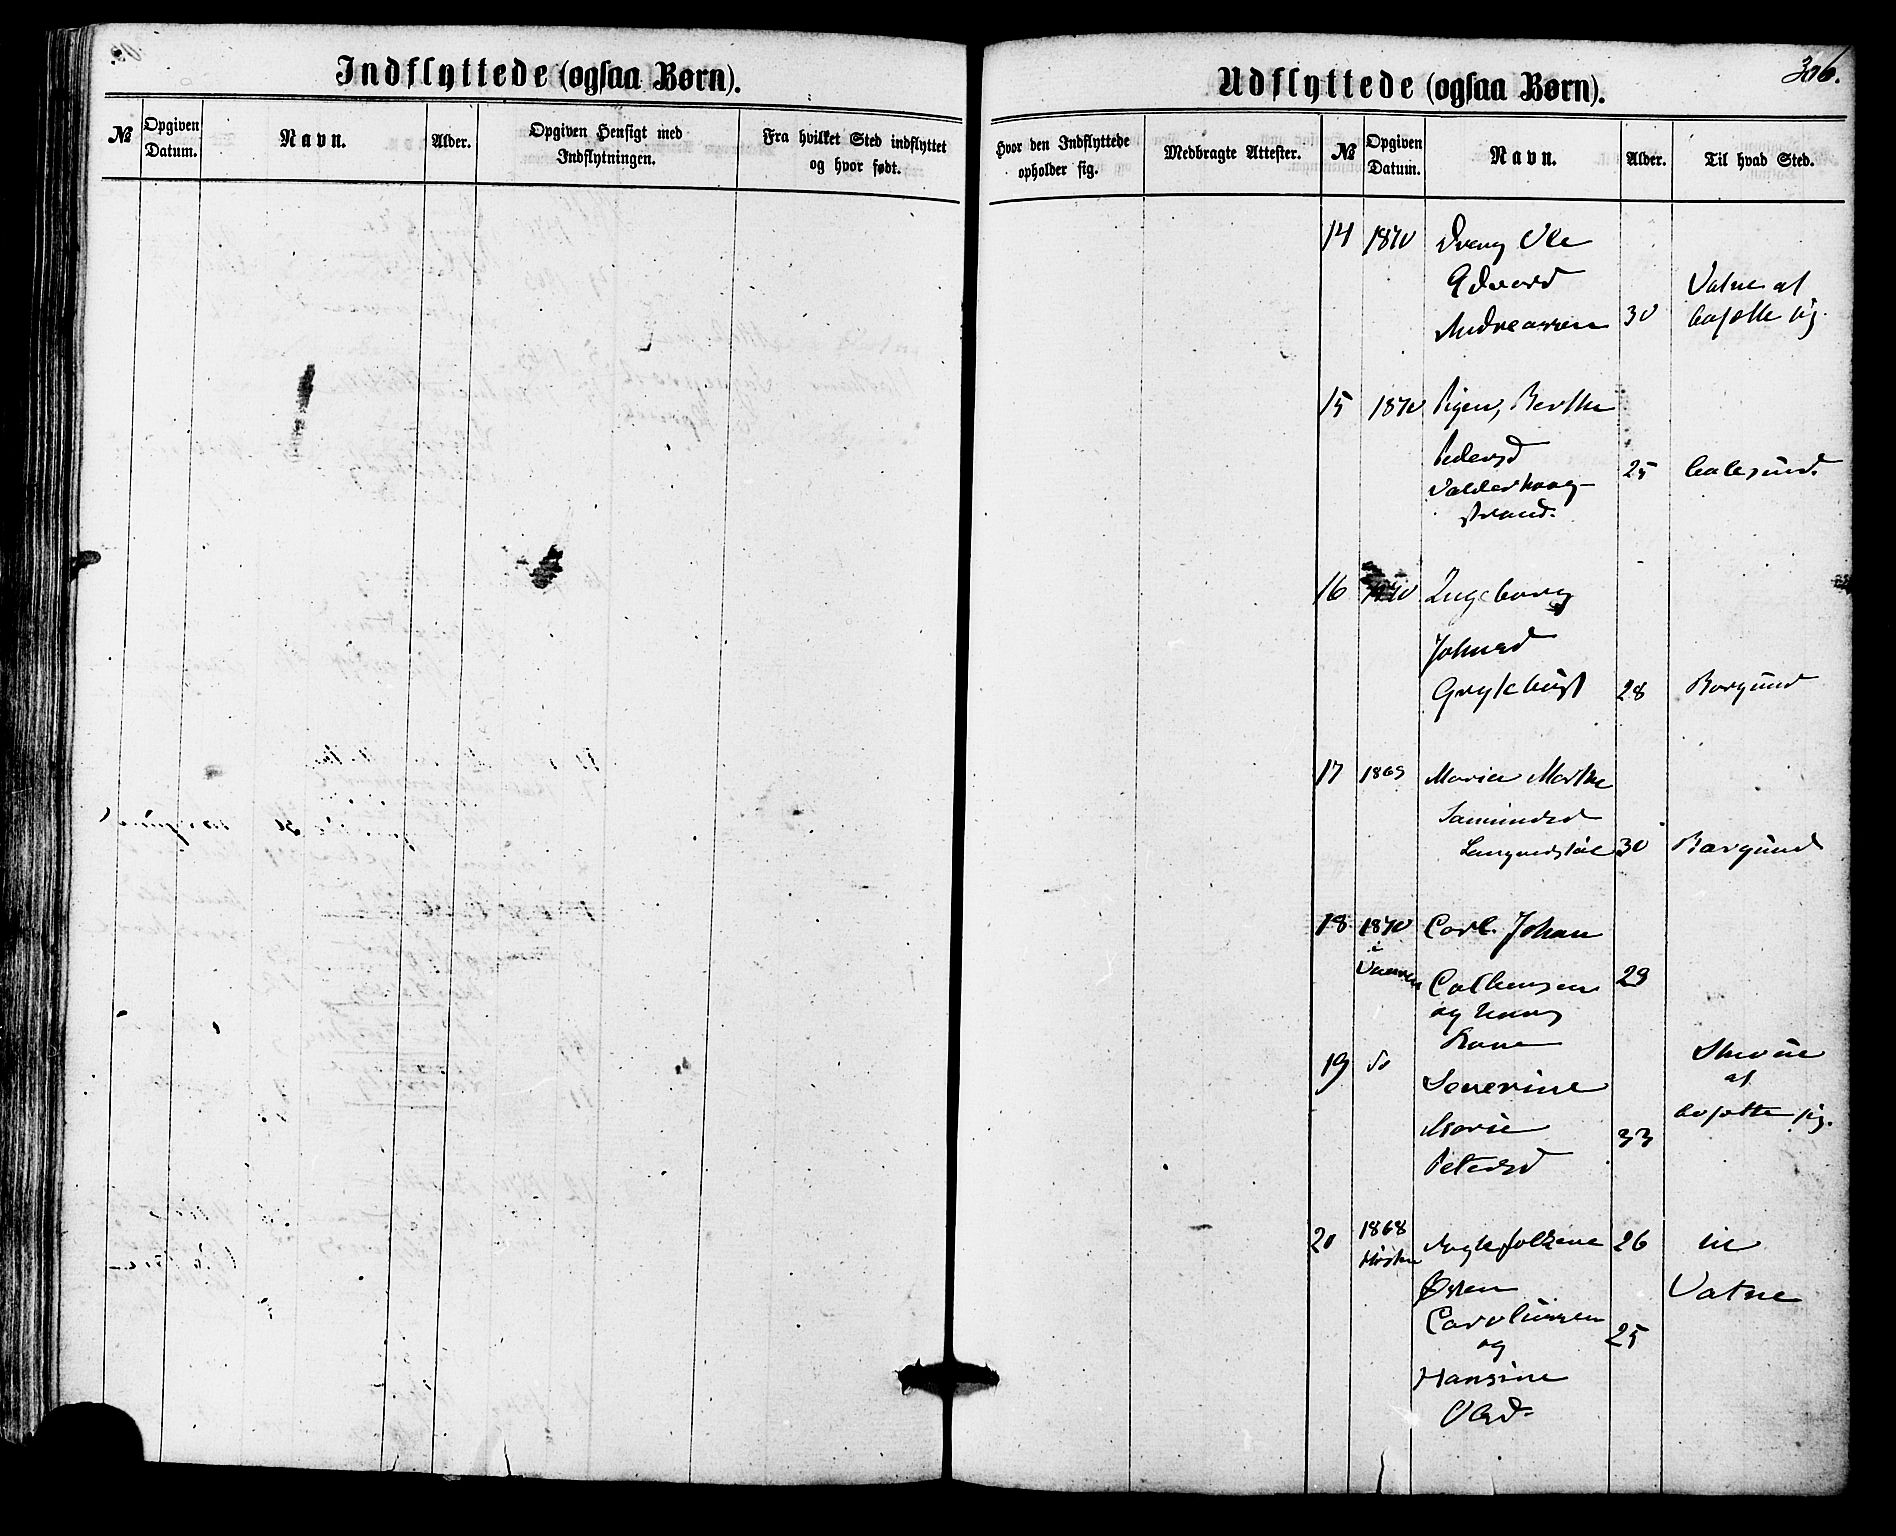 Indflyttede (ogsaa Børn).
№
Opgiven Datum.
Navn.
Alder.
Opgiven Hensigt med Indflytningen.
Fra hvilket Sted indflyttet og hvor født.
306.
Udflyttede (ogsaa Børn).
Hvor den Indflyttede opholder sig.
Medbragte Attester.
№
Opgiven Datum.
Navn.
Alder.
Til hvad Sted.
14 1870 Dreng Ole
Edvard Vatne at
Andreassen 30 bosætte sig.
15 1870 Pigen, Berthe
Pedersd
Valderhaug- 25 Aalesund.
strand.
16 1870 Ingeborg
Johnsd
Grytehust 28 Borgund
17 1869 Marie Marthe
Samundsd
30 Borgund
18 1870 Carl Johan
i
Vaaren 29
og hans
Kone
19 do Severine
at
bosætte sig.
Marie 33
Petersd
20 1868 Høsten Ægtefolkene 26 til
Vatne
25
og
Hansine
Olsd.